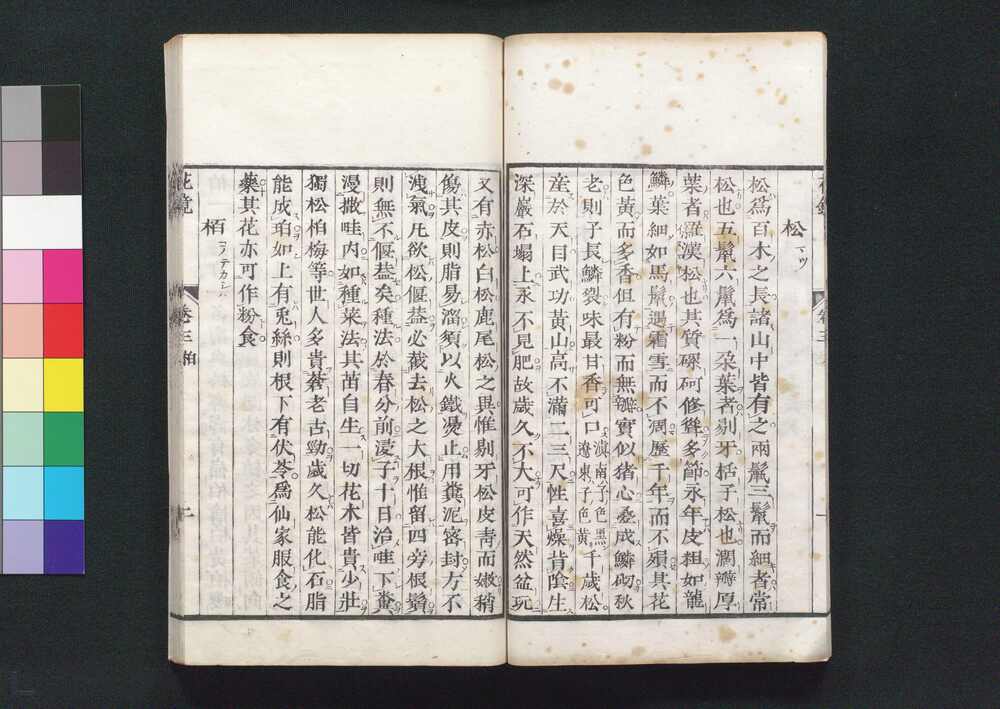 松 マツ
松爲百木之長諸山中皆有之兩鬣三鬣而細者常
松也五鬣六鬣爲一朶葉者剔牙栝子松也濶瓣厚
葉者羅漢松也其質磥砢修聳多節永年皮粗如龍
鱗葉細如馬鬣遇霜雪而不凋歷千年而不殞其花
色黃而多香但有粉而無瓣實似猪心叠成鱗砌秋
老則子長鱗裂味最甘香可口滇南子色黑遼東子色黃千歲松
產於天目武功黃山高不滿二三尺性喜燥背陰生
深巖石塌上永不見肥故歲久不大可作天然盆玩
又有赤松白松鹿尾松之異惟剔牙松皮青而嫩稍
傷其皮則脂易溜須以火鐵燙止用糞泥密封方不
洩氣凡欲松偃葢必截去松之大根惟留四旁根鬚
則無不偃葢矣種法於春分前浸子十日治畦下糞
漫撒畦内如種菜法其苗自生一切花木皆貴少壯
獨松柏梅等世人多貴蒼老古勁歲久松能化石脂
能成珀如上有兎絲則根下有伏苓爲仙家服食之
藥其花亦可作粉食
栢 コノテカシハ
花鏡 卷三 柏